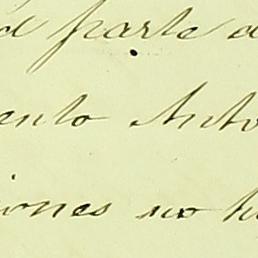 d parte d
ento Anto
iones no h